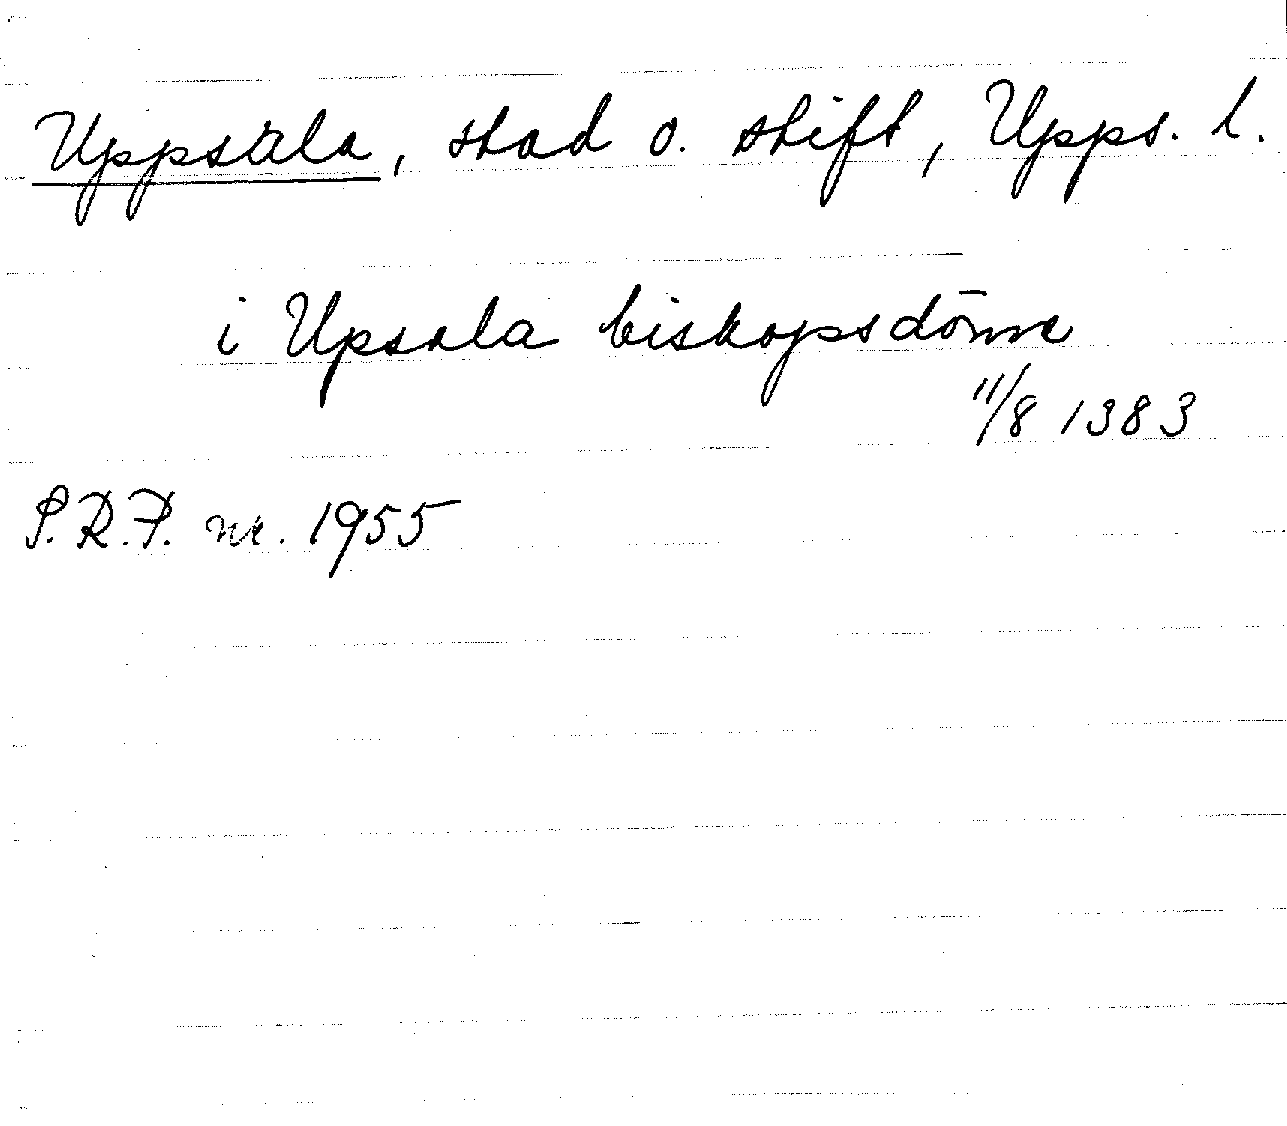 Uppsala, stad o. stift, Upps. l.
i Upsala biskopsdöme
11/8 1383
S.R.P. nr. 1955